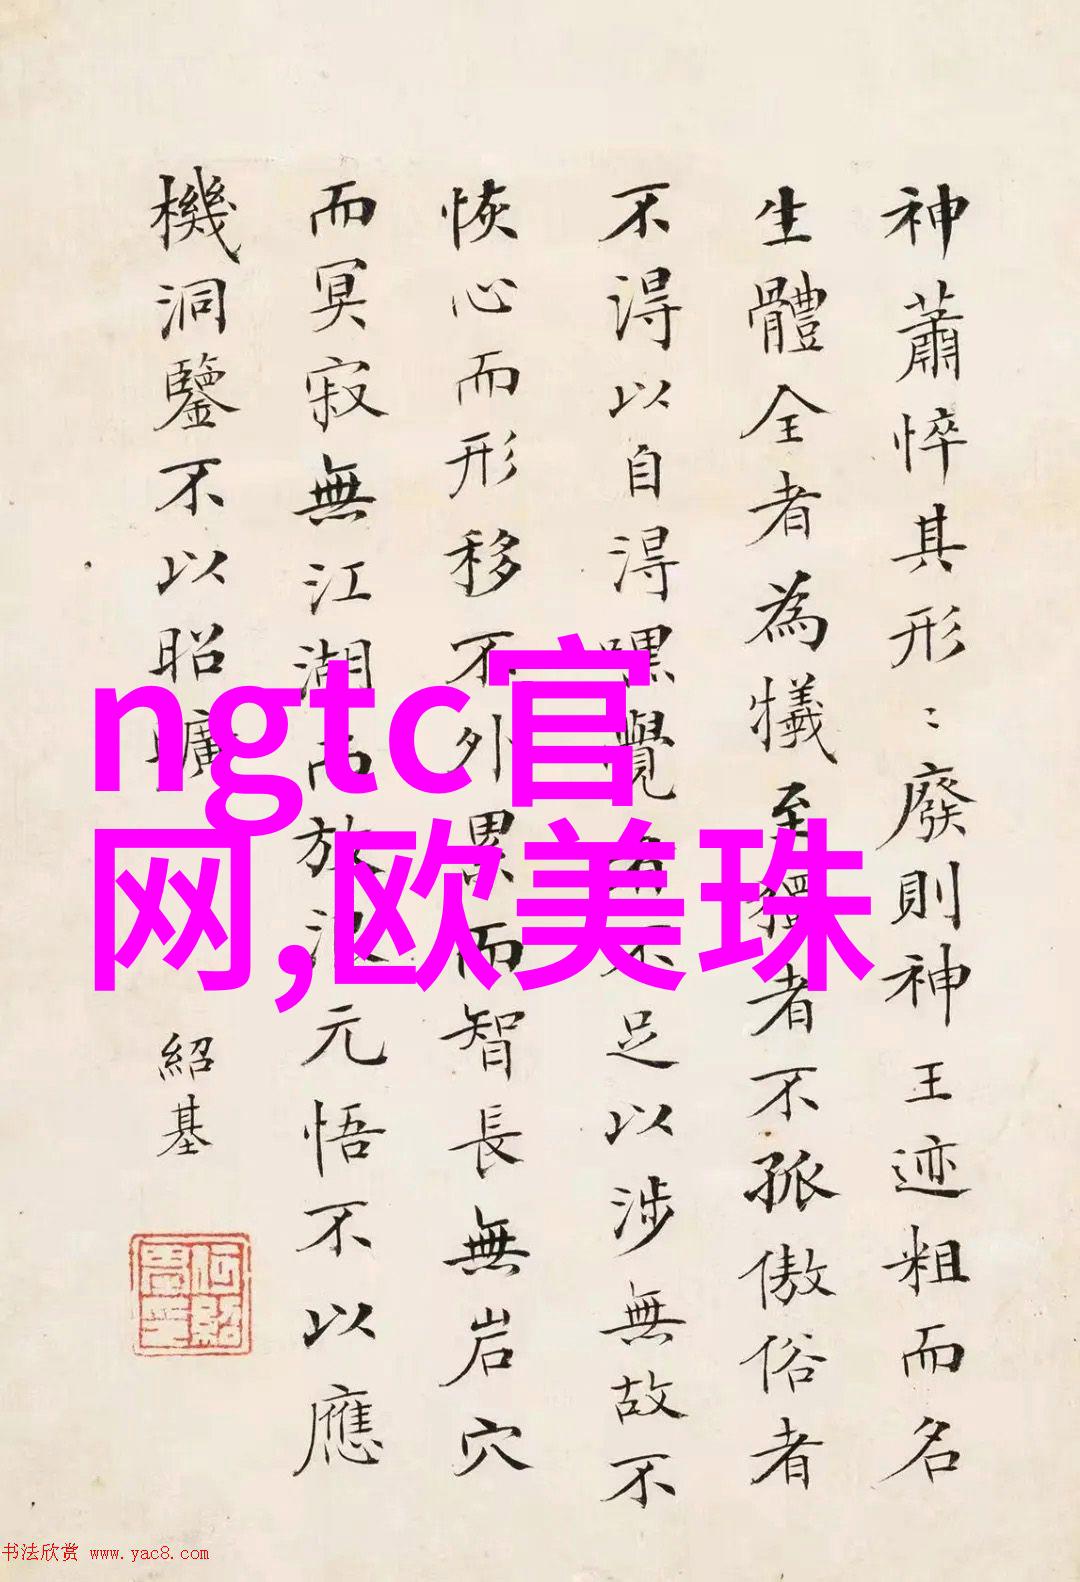 神蕭悴其形〻廢則神王迹粗而名
生體全者為犧至獨者不孤傲俗者
不得以自得默覺者不足以涉無故不
恢心而形移不外累而智長無岩穴
而冥寂無江湖而放浪元悟不以應
機洞鑒不以昭曠
紹基
ngtc官
网,欧美珠
书法欣赏 www.yac8.com